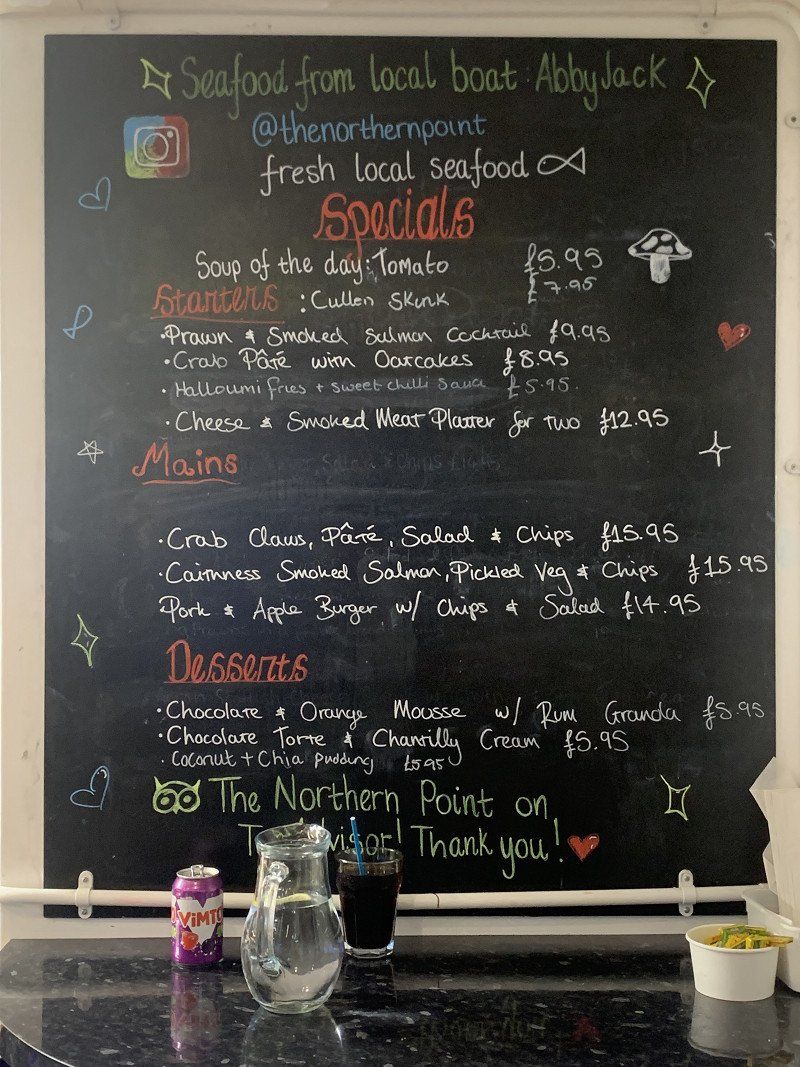 Seafood from local boat: AbbyJack
@thenorthernpoint
fresh local seafood
Specials
Soup of the day: Tomato £5.95
Starters : Cullen Skink £7.95
· Prawn & Smoked Salmon Cocktail £9.95
· Crab Pâté with Oatcakes £8.95
· Halloumi fries + sweet chilli sauce £5.95.
· Cheese & Smoked Meat Platter for two £12.95
Mains
· Crab Claws, Pâté, Salad & Chips £15.95
· Caithness Smoked Salmon, Pickled Veg & Chips £15.95
Pork & Apple Burger w/ Chips & Salad £14.95
Desserts
· Chocolate & Orange Mousse w/ Rum Granda £5.95
· Chocolate Torte & Chantilly Cream £5.95
· Coconut + Chia Pudding £5.95
The Northern Point on
Thank you!
ViMTO